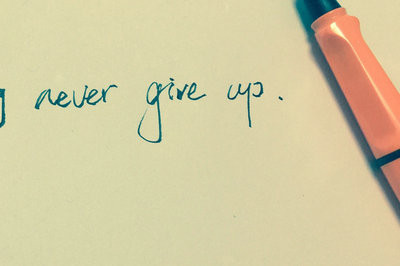 never give up.